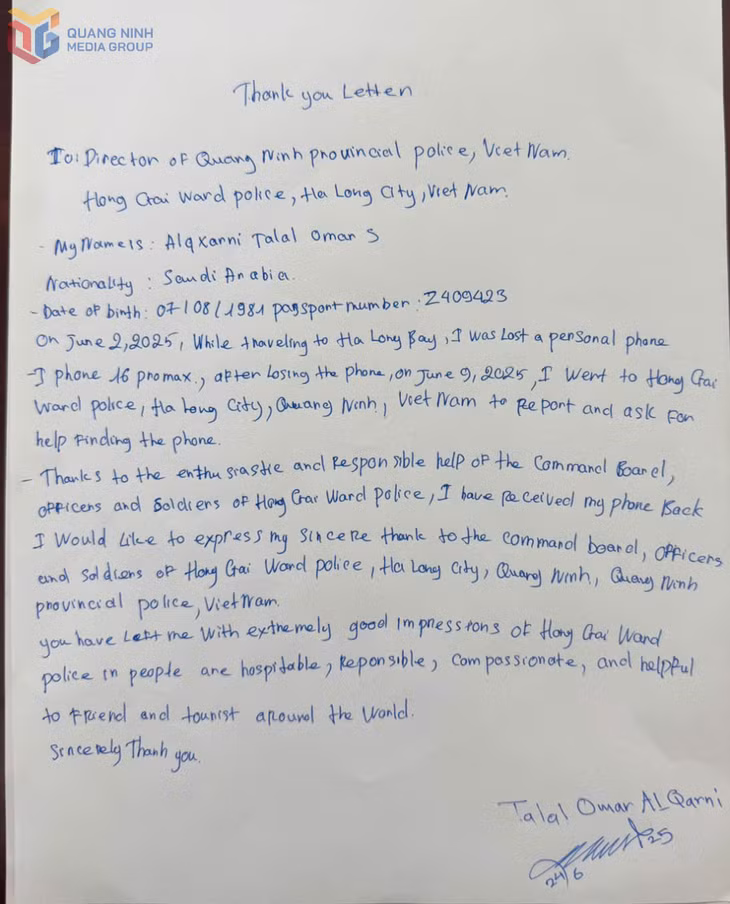 QUANG NINH
MEDIA GROUP
Thank you Letter
To: Director of Quang Ninh provincial police, Viet Nam.
Hong Gai Ward police, Ha Long City, Viet Nam.
- My Name is: Alqxarni Talal Omar S
Nationality : Saudi Arabia.
- Date of birth: 07/08/1981 passport number: Z409423
On June 2, 2025, While traveling to Ha Long Bay, I was lost a personal phone
- I phone 16 promax., after losing the phone, on June 9, 2025, I went to Hong Gai
Ward police, Ha Long City, Quang Ninh, Viet Nam to Report and ask for
help finding the phone.
- Thanks to the enthusiastic and Responsible help of the Command Board,
officers and soldiers of Hong Gai Ward police, I have received my phone Back
I Would Like to express my sincere thank to the command board, officers
and soldiers of Hong Gai Ward police, Ha Long City, Quang Ninh, Quang Ninh
provincial police, Viet Nam.
you have Left me With extremely good impressions of Hong Gai Ward
police in people are hospitable, Reponsible, compassionate, and helpful
to friend and tourist around the World.
Sincerely Thank you.
Talal Omar ALQarni
25
24/6